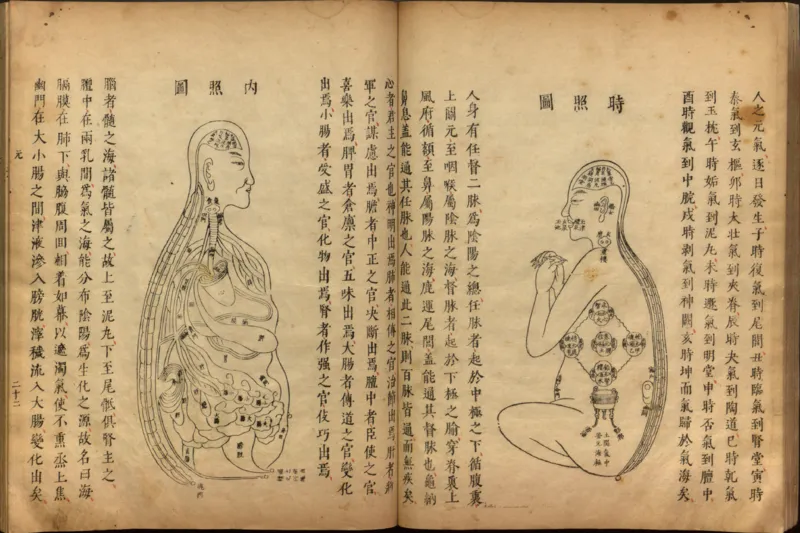 人之元氣逐日發生子時復氣到尾閭丑時臨氣到腎堂寅時
泰氣到玄樞卯時大壯氣到夾脊辰時夬氣到陶道巳時乾氣
到玉枕午時姤氣到泥丸未時遯氣到明堂申時否氣到膻中
酉時觀氣到中脘戌時剝氣到神闕亥時坤而氣歸於氣海矣
時照圖
中極
氣海
關元
土釜
人身有任督二脉為陰陽之總任脉者起於中極之下循腹裏
上關元至咽喉屬陰脉之海督脉者起於下極之腧穿脊裏上
風府循額至鼻屬陽脉之海鹿運尾閭蓋能通其督脉也龜納
鼻息蓋能通其任脉也人能通此二脉則百脉皆通而無疾矣
心者君主之官也神明出焉肺者相傅之官治節出焉肝者將
軍之官謀慮出焉膽者中正之官決斷出焉膻中者臣使之官
喜樂出焉脾胃者倉廩之官五味出焉大腸者傳道之官變化
出焉小腸者受盛之官化物出焉腎者作强之官伎巧出焉
內照圖
膀胱
腦者髓之海諸髓皆屬之故上至泥丸下至尾骶俱腎主之
膻中在兩乳間為氣之海能分布陰陽為生化之源故名曰海
膈膜在肺下與脇腹周回相着如幕以遮濁氣使不熏烝上焦
幽門在大小腸之間津液滲入膀胱滓穢流入大腸變化由矣
元
二十二